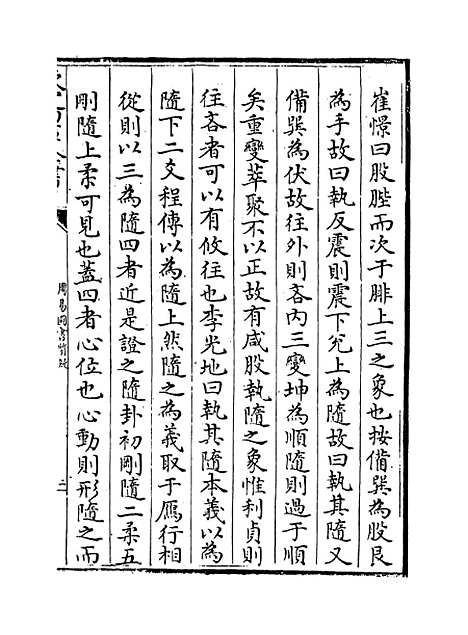 崔憬曰股䏶而次于腓上三之象也按備巽為股艮
為手故曰執反震則震下兊上為隨故曰執其隨又
備巽為伏故往外則吝内三變坤為順隨則過于順
矣重變萃聚不以正故有咸股執隨之象惟利貞則
往吝者可以有攸往也李光地曰執其隨本義以為
隨下二爻程傳以為隨上然隨之為義取于鴈行相
從則以三為隨四者近是證之隨卦初剛隨二柔五
剛隨上柔可見也蓋四者心位也心動則形隨之而
周易圖書質疑